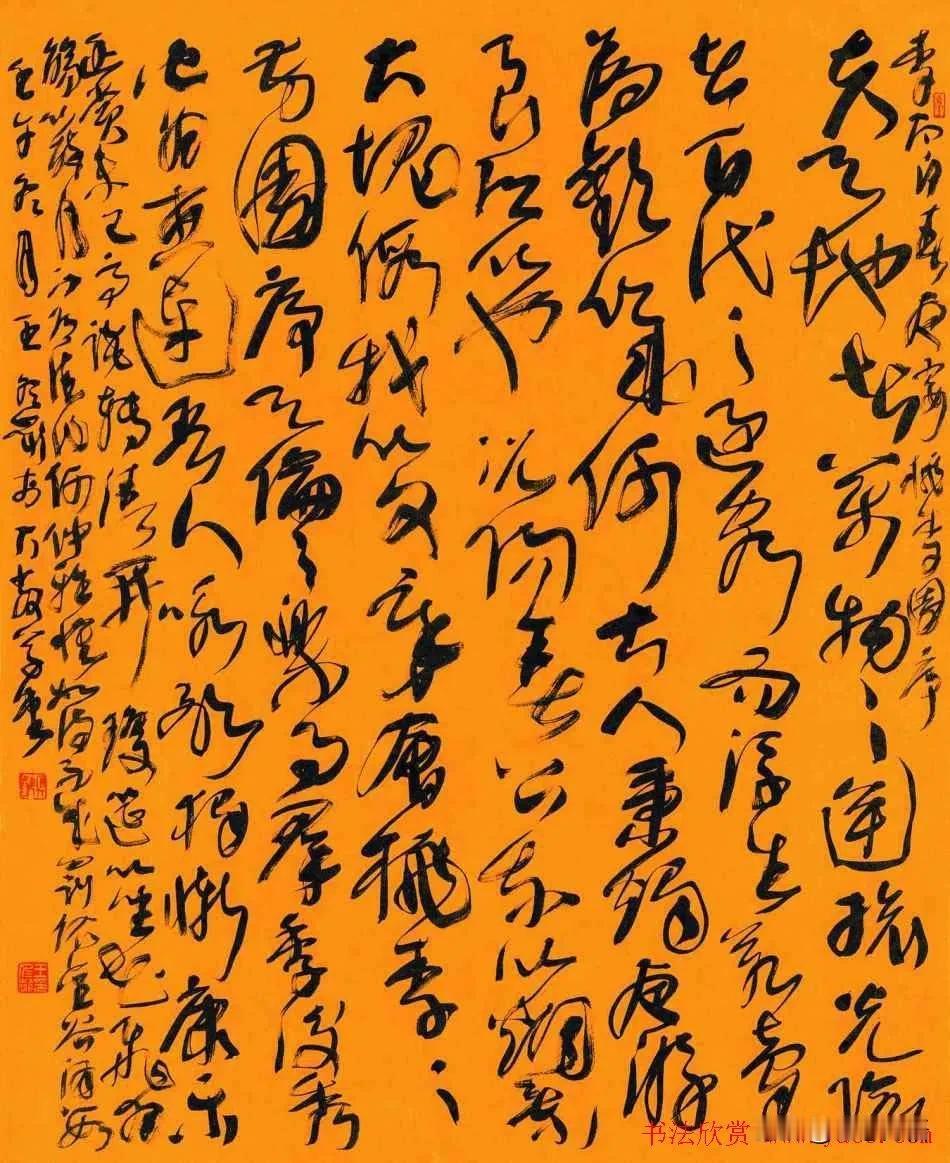 李太白春夜宴桃李園序
夫天地者萬物之逆旅光陰
者百代之過客而浮生若夢
為歡幾何古人秉燭夜遊
良有以也況陽春召我以煙景
大塊假我以文章會桃李之
芳園序天倫之樂事群季俊秀
皆為惠連吾人詠歌獨慚康樂
幽賞未已高談轉清開瓊筵以坐花飛羽
觴而醉月不有佳作何伸雅懷如詩不成罰依金谷酒數
壬午冬月王冬齡
书法欣赏